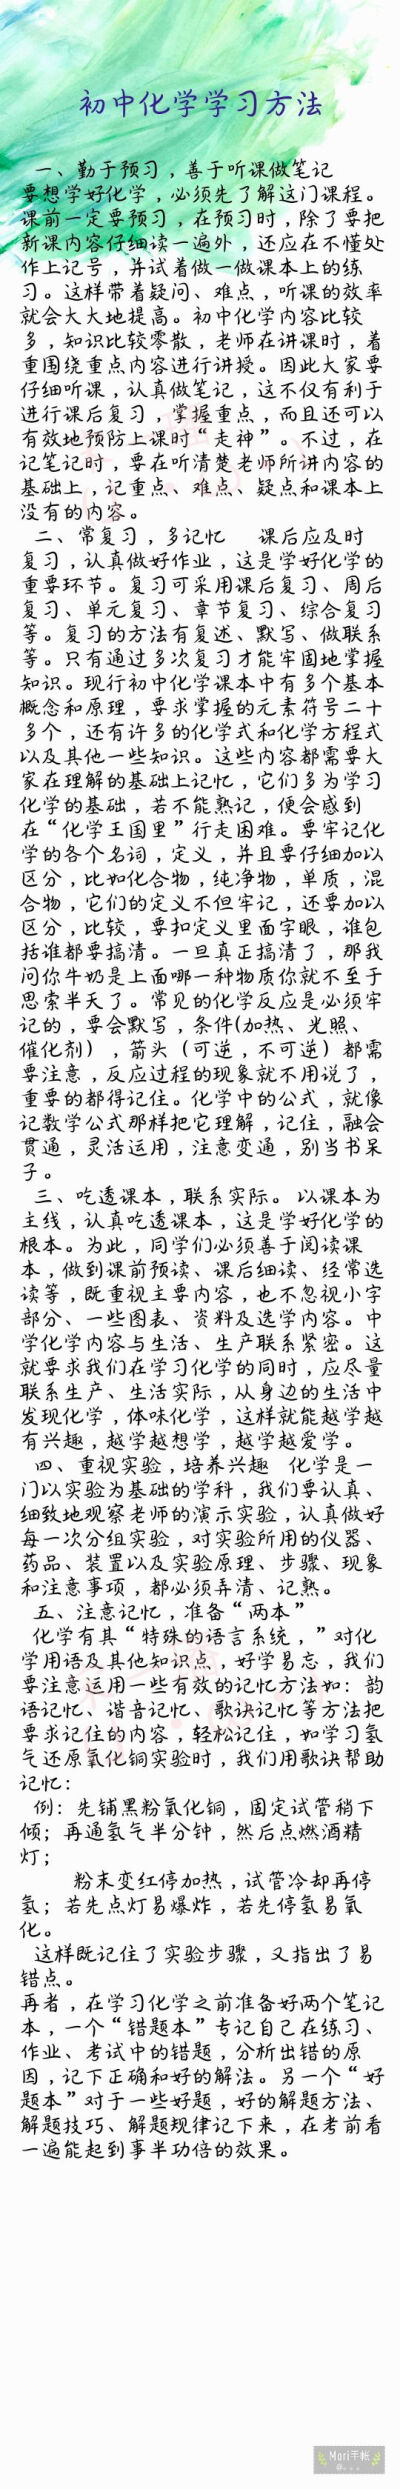 初中化学学习方法
一、勤于预习，善于听课做笔记
要想学好化学，必须先了解这门课程。
课前一定要预习，在预习时，除了要把
新课内容仔细读一遍外，还应在不懂处
作上记号，并试着做一做课本上的练
习。这样带着疑问、难点，听课的效率
就会大大地提高。初中化学内容比较
多，知识比较零散，老师在讲课时，着
重围绕重点内容进行讲授。因此大家要
仔细听课，认真做笔记，这不仅有利于
进行课后复习，掌握重点，而且还可以
有效地预防上课时“走神”。不过，在
记笔记时，要在听清楚老师所讲内容的
基础上，记重点、难点、疑点和课本上
没有的内容。
二、常复习，多记忆 课后应及时
复习，认真做好作业，这是学好化学的
重要环节。复习可采用课后复习、周后
复习、单元复习、章节复习、综合复习
等。复习的方法有复述、默写、做联系
等。只有通过多次复习才能牢固地掌握
知识。现行初中化学课本中有多个基本
概念和原理，要求掌握的元素符号二十
多个，还有许多的化学式和化学方程式
以及其他一些知识。这些内容都需要大
家在理解的基础上记忆，它们多为学习
化学的基础，若不能熟记，便会感到
在“化学王国里”行走困难。要牢记化
学的各个名词，定义，并且要仔细加以
区分，比如化合物，纯净物，单质，混
合物，它们的定义不但牢记，还要加以
区分，比较，要扣定义里面字眼，谁包
括谁都要搞清。一旦真正搞清了，那我
问你牛奶是上面哪一种物质你就不至于
思索半天了。常见的化学反应是必须牢
记的，要会默写，条件(加热、光照、
催化剂），箭头（可逆，不可逆）都需
要注意，反应过程的现象就不用说了，
重要的都得记住。化学中的公式，就像
记数学公式那样把它理解，记住，融会
贯通，灵活运用，注意变通，别当书呆
子。
三、吃透课本，联系实际。以课本为
主线，认真吃透课本，这是学好化学的
根本。为此，同学们必须善于阅读课
本，做到课前预读、课后细读、经常选
读等，既重视主要内容，也不忽视小字
部分、一些图表、资料及选学内容。中
学化学内容与生活、生产联系紧密。这
就要求我们在学习化学的同时，应尽量
联系生产、生活实际，从身边的生活中
发现化学，体味化学，这样就能越学越
有兴趣，越学越想学，越学越爱学。
四、重视实验，培养兴趣 化学是一
门以实验为基础的学科，我们要认真、
细致地观察老师的演示实验，认真做好
每一次分组实验，对实验所用的仪器、
药品、装置以及实验原理、步骤、现象
和注意事项，都必须弄清、记熟。
五、注意记忆，准备“两本”
化学有其“特殊的语言系统，”对化
学用语及其他知识点，好学易忘，我们
要注意运用一些有效的记忆方法如：韵
语记忆、谐音记忆、歌诀记忆等方法把
要求记住的内容，轻松记住，如学习氢
气还原氧化铜实验时，我们用歌诀帮助
记忆：
例：先铺黑粉氧化铜，固定试管稍下
倾；再通氢气半分钟，然后点燃酒精
灯；
粉末变红停加热，试管冷却再停
氢；若先点灯易爆炸，若先停氢易氧
化。
这样既记住了实验步骤，又指出了易
错点。
再者，在学习化学之前准备好两个笔记
本，一个“错题本”专记自己在练习、
作业、考试中的错题，分析出错的原
因，记下正确和好的解法。另一个“好
题本”对于一些好题，好的解题方法、
解题技巧、解题规律记下来，在考前看
一遍能起到事半功倍的效果。
Mori手帐